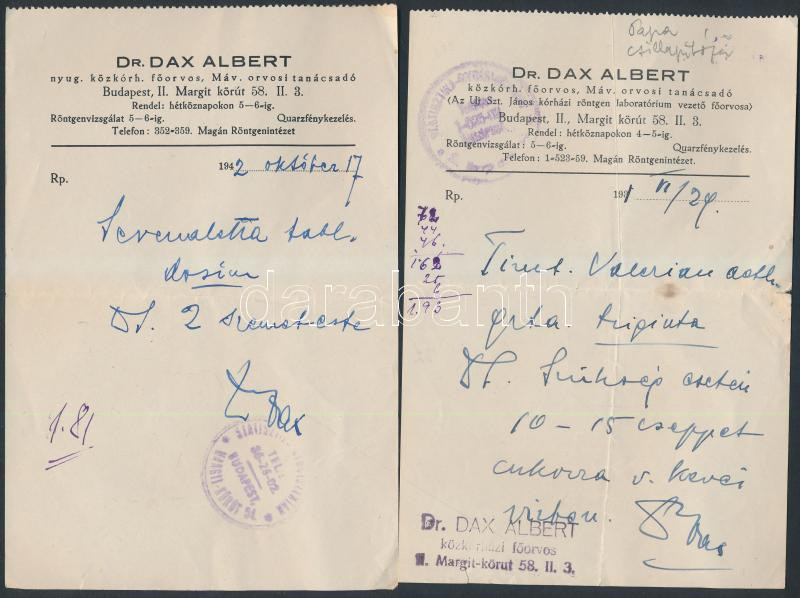 DR. DAX ALBERT
nyug. közkórh. főorvos, Máv. orvosi tanácsadó
Budapest, II. Margit körút 58. II. 3.
Rendel: hétköznapokon 5–6-ig.
Röntgenvizsgálat 5–6-ig. Quarzfénykezelés.
Telefon: 352-359. Magán Röntgenintézet
Rp. 1942 október 17
Sevenaletta tabl.
DS. 2 szemet este
Dax
1.81
TEL.:
BUDAPEST,
MARGIT-KÖRÚT 54.
Papa
csillapítója
DR. DAX ALBERT
közkórh. főorvos, Máv. orvosi tanácsadó
(Az Uj Szt. János kórházi röntgen laboratórium vezető főorvosa)
Budapest, II., Margit körút 58. II. 3.
Rendel: hétköznapokon 4–5-ig.
Röntgenvizsgálat: 5–6-ig. Quarzfénykezelés.
Telefon: 1-523-59. Magán Röntgenintézet.
Rp. 193 VI/29.
72
44
46.
162
1.93
Tinct. Valerian aeth.
gtta triginta
DS. Szükség esetén
10–15 cseppet
cukorra v. kevés
vízben.
Dax
Dr. DAX ALBERT
közkórházi főorvos
II. Margit-körut 58. II. 3.
darabanth